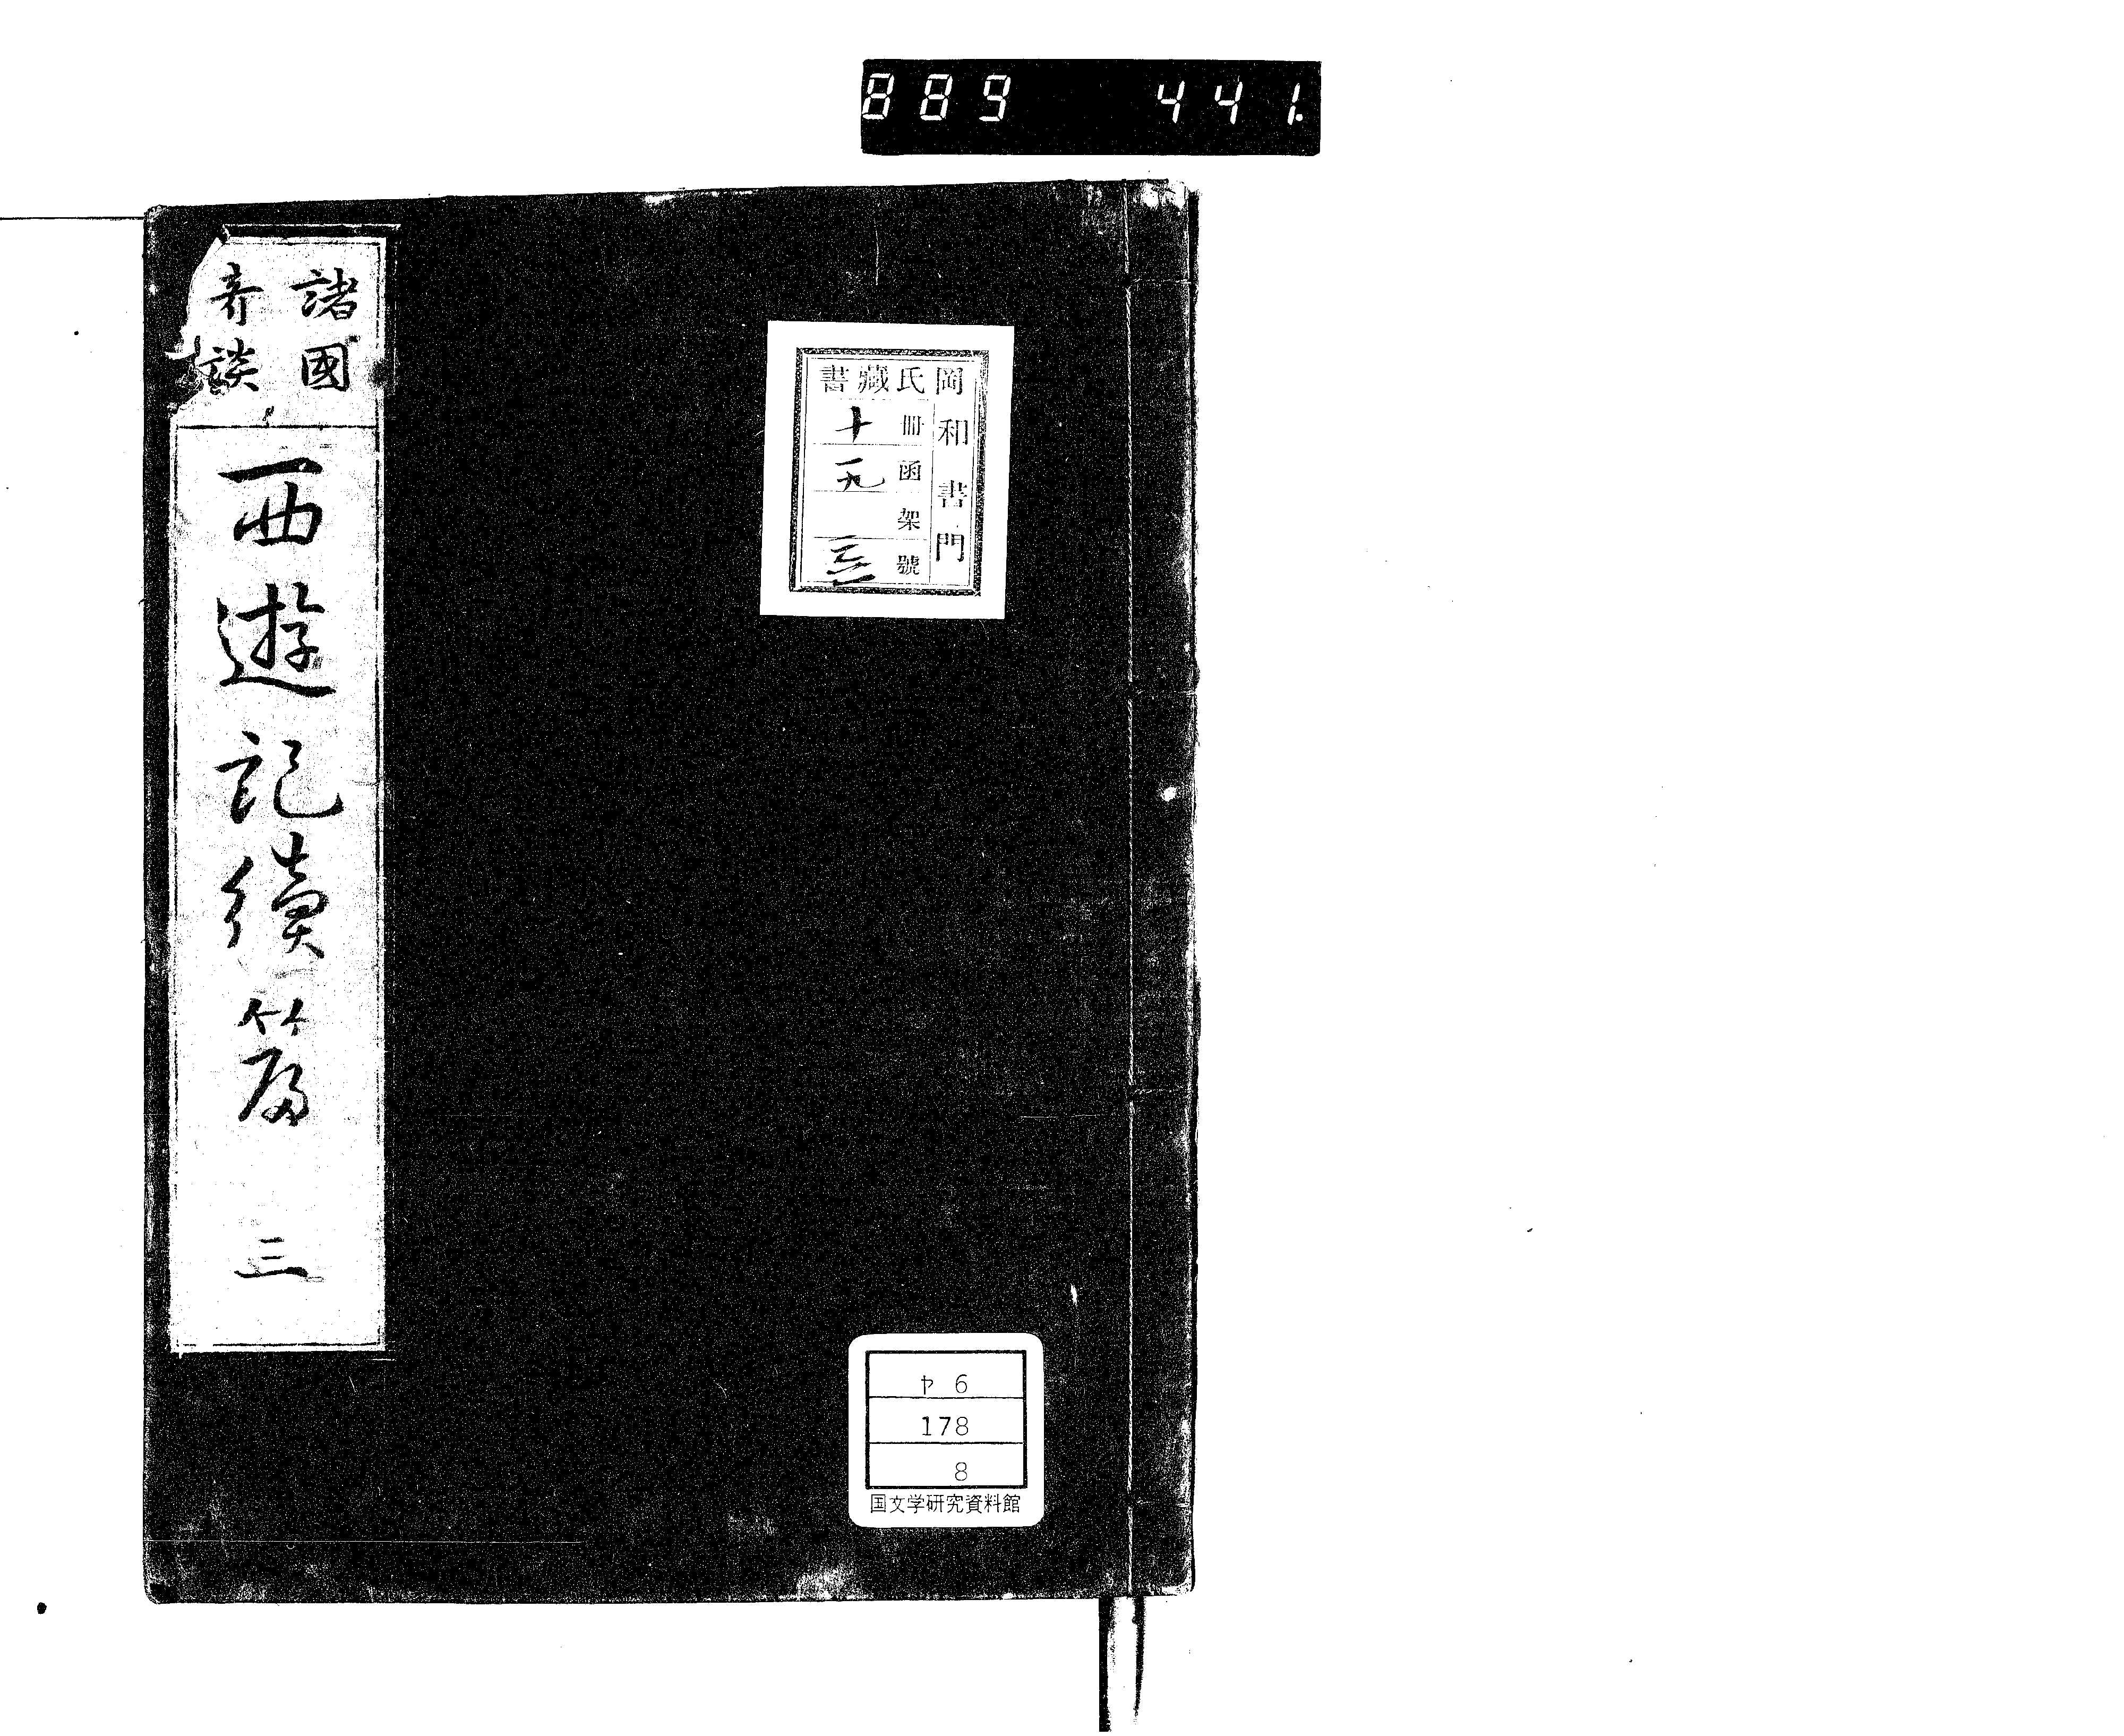 889 441.
諸國
奇談
西遊記續篇 三
岡氏藏書
和書門
冊 十
函 一九
架
號 三
ヤ 6
178
8
国文学研究資料館